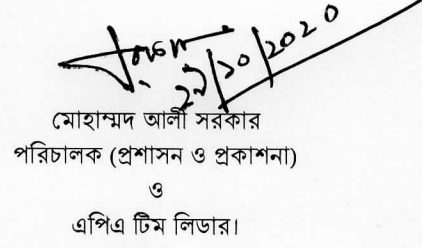 ২৯/১০/২০২০
মোহাম্মদ আলী সরকার
পরিচালক (প্রশাসন ও প্রকাশনা)
ও
এপিএ টিম লিডার।